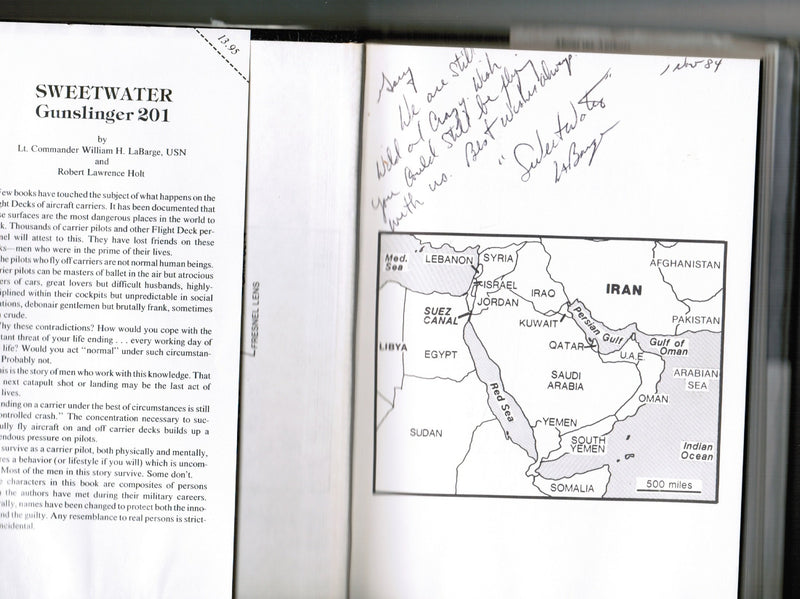 13.95
SWEETWATER
Gunslinger 201
by
Lt. Commander William H. LaBarge, USN
and
Robert Lawrence Holt
Few books have touched the subject of what happens on the
ht Decks of aircraft carriers. It has been documented that
se surfaces are the most dangerous places in the world to
k. Thousands of carrier pilots and other Flight Deck per-
nel will attest to this. They have lost friends on these
ks—men who were in the prime of their lives.
he pilots who fly off carriers are not normal human beings.
rier pilots can be masters of ballet in the air but atrocious
ers of cars, great lovers but difficult husbands, highly-
iplined within their cockpits but unpredictable in social
ations, debonair gentlemen but brutally frank, sometimes
crude.
hy these contradictions? How would you cope with the
tant threat of your life ending . . . every working day of
life? Would you act "normal" under such circumstan-
Probably not.
his is the story of men who work with this knowledge. That
next catapult shot or landing may be the last act of
lives.
nding on a carrier under the best of circumstances is still
ontrolled crash." The concentration necessary to suc-
ully fly aircraft on and off carrier decks builds up a
endous pressure on pilots.
survive as a carrier pilot, both physically and mentally,
res a behavior (or lifestyle if you will) which is uncom-
Most of the men in this story survive. Some don't.
e characters in this book are composites of persons
the authors have met during their military careers.
rally, names have been changed to protect both the inno-
nd the guilty. Any resemblance to real persons is strict-
ncidental.
FRESNEL LENS
Nov 84
We are still
Wild and Crazy. Wish
you could still be flying
with us. Best wishes always.
"Sweetwater"
LaBarge
Med.
Sea
LEBANON
SYRIA
AFGHANISTAN
ISRAEL
IRAQ
IRAN
JORDAN
SUEZ
CANAL
KUWAIT
Persian Gulf
PAKISTAN
LIBYA
EGYPT
QATAR
Gulf of
Oman
U.A.E.
SAUDI
ARABIA
ARABIAN
SEA
Red Sea
OMAN
SUDAN
YEMEN
SOUTH
YEMEN
Indian
Ocean
SOMALIA
500 miles